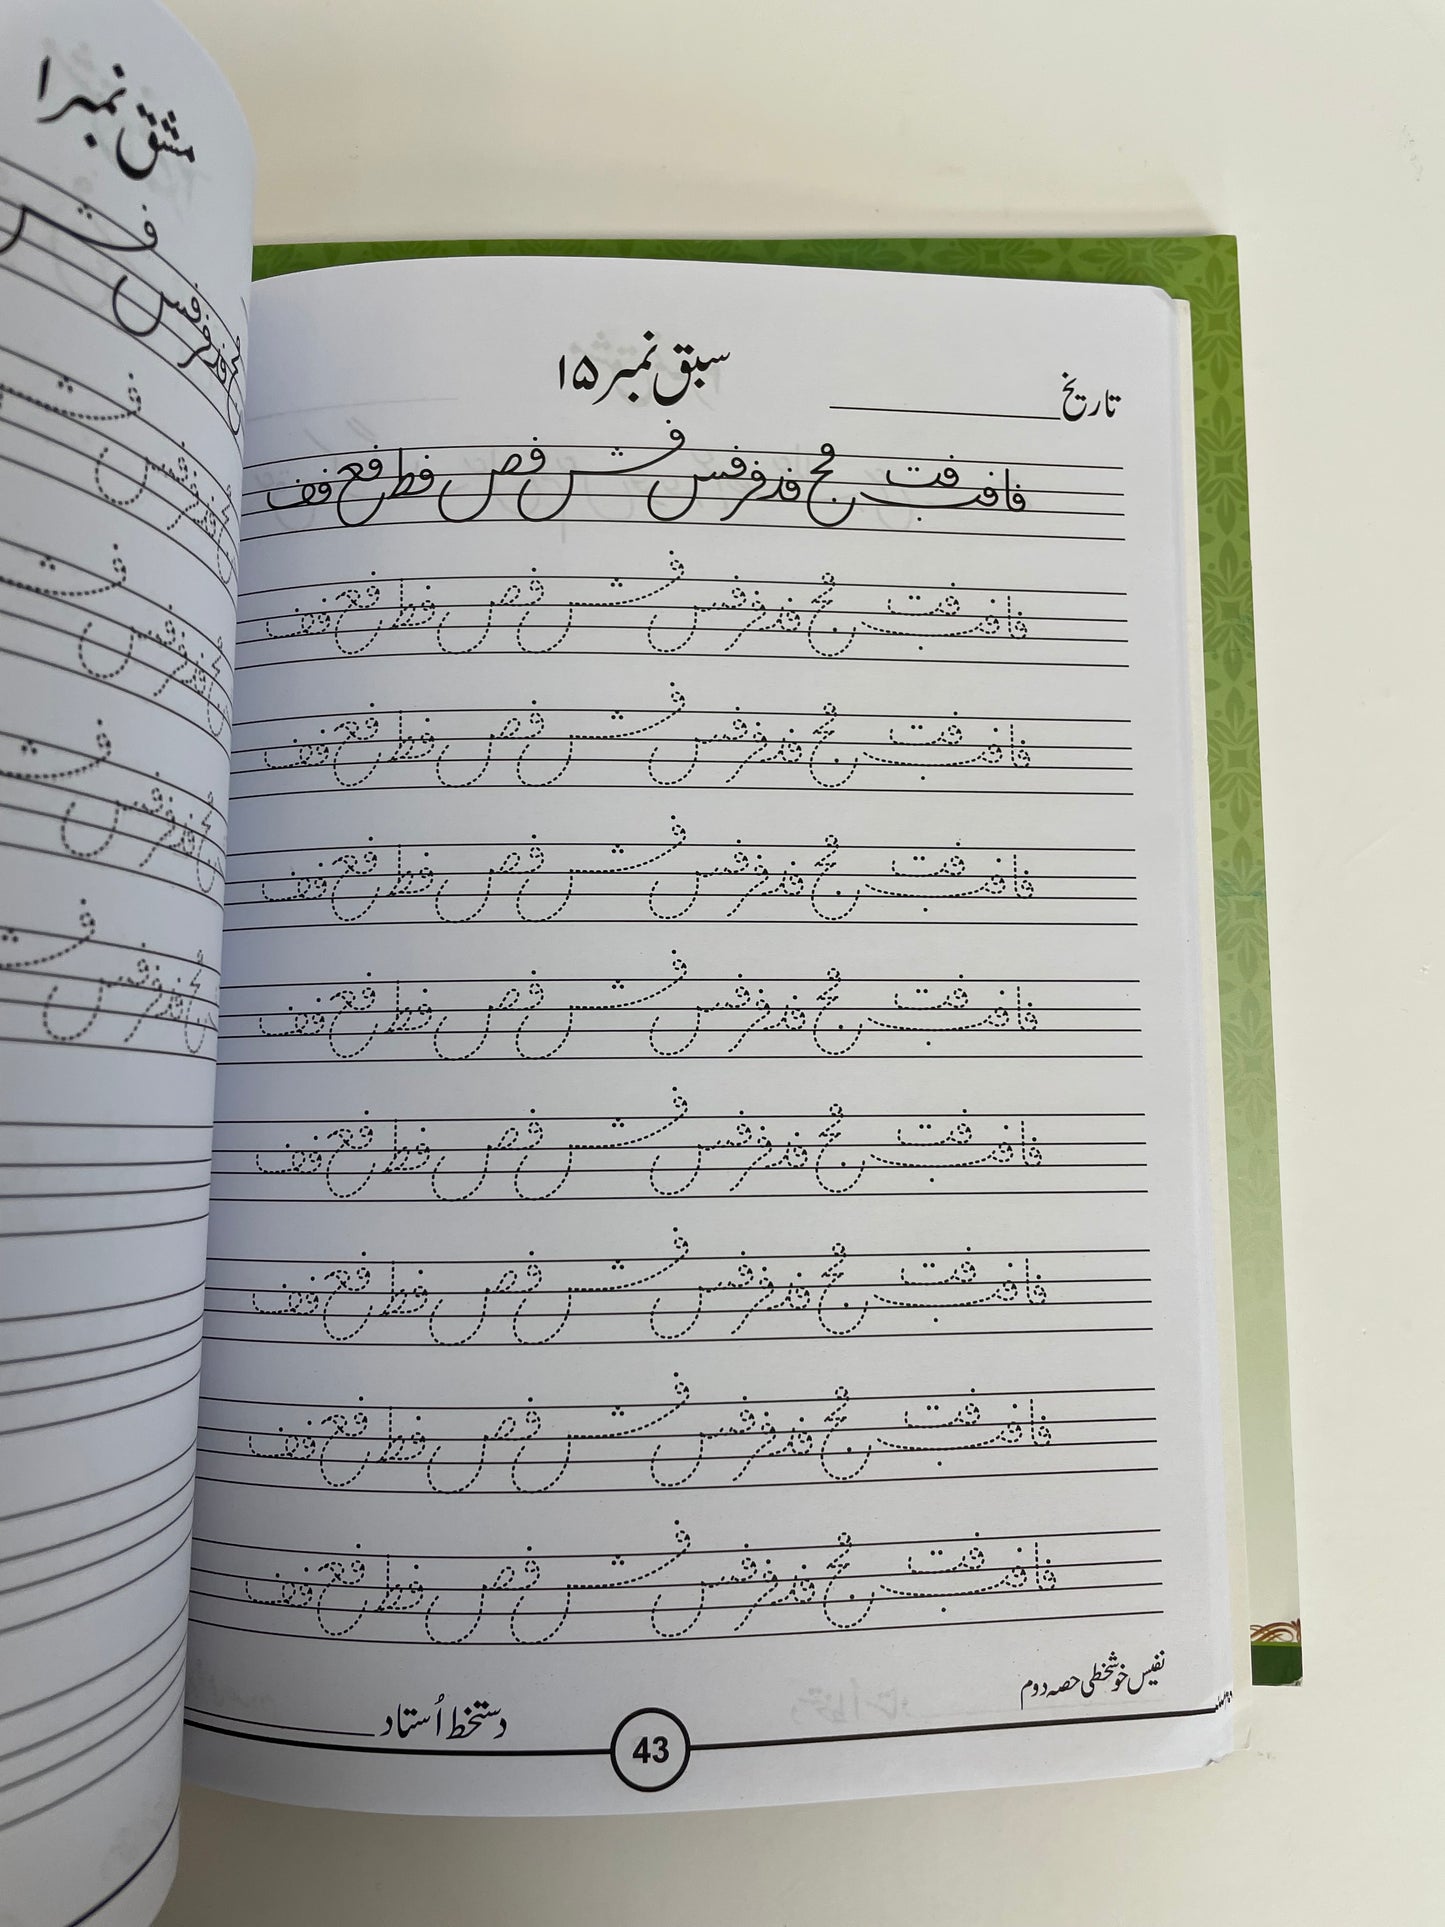 مشق نمبر ۱
سبق نمبر ۱۵
تاریخ
فا فب فت فج فد فر فس فش فص فط فع فف
فا فب فت فج فد فر فس فش فص فط فع فف
فا فب فت فج فد فر فس فش فص فط فع فف
فا فب فت فج فد فر فس فش فص فط فع فف
فا فب فت فج فد فر فس فش فص فط فع فف
فا فب فت فج فد فر فس فش فص فط فع فف
فا فب فت فج فد فر فس فش فص فط فع فف
فا فب فت فج فد فر فس فش فص فط فع فف
فا فب فت فج فد فر فس فش فص فط فع فف
نفیس خوشخطی حصہ دوم
دستخط اُستاد
43